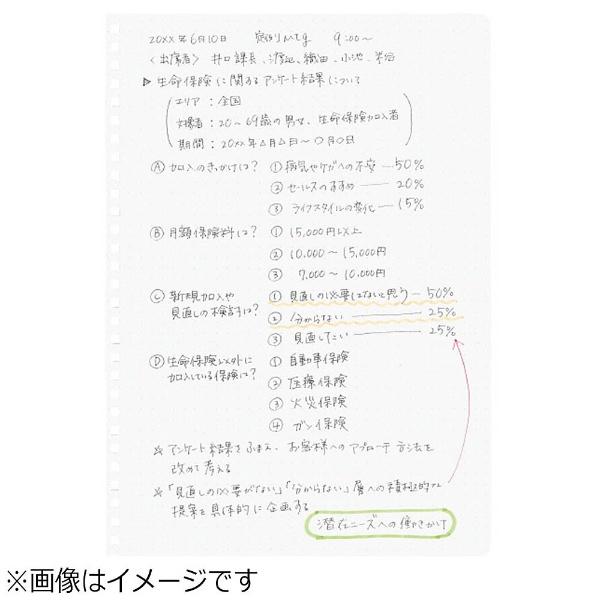 20XX年6月10日 定例Mtg 9:00〜
〈出席者〉 井口課長、渡辺、織田、小池、米谷
▷ 生命保険に関するアンケート結果について
エリア：全国
対象者：20〜69歳の男女、生命保険加入者
期間：20XX年△月△日〜○月○日
Ⓐ 加入のきっかけは？ ① 病気やケガへの不安 — 50%
② セールスのすすめ — 20%
③ ライフスタイルの変化 — 15%
Ⓑ 月額保険料は？ ① 15,000円以上
② 10,000〜15,000円
③ 7,000〜10,000円
Ⓒ 新規加入や ① 見直しの必要はないと思う — 50%
見直しの検討は？ ② 分からない — 25%
③ 見直したい — 25%
Ⓓ 生命保険以外に ① 自動車保険
加入している保険は？ ② 医療保険
③ 火災保険
④ ガン保険
※ アンケート結果をふまえ、お客様へのアプローチ方法を
改めて考える
※「見直しの必要がない」「分からない」層への積極的な
提案を具体的に企画する
潜在ニーズへの働きかけ
※画像はイメージです